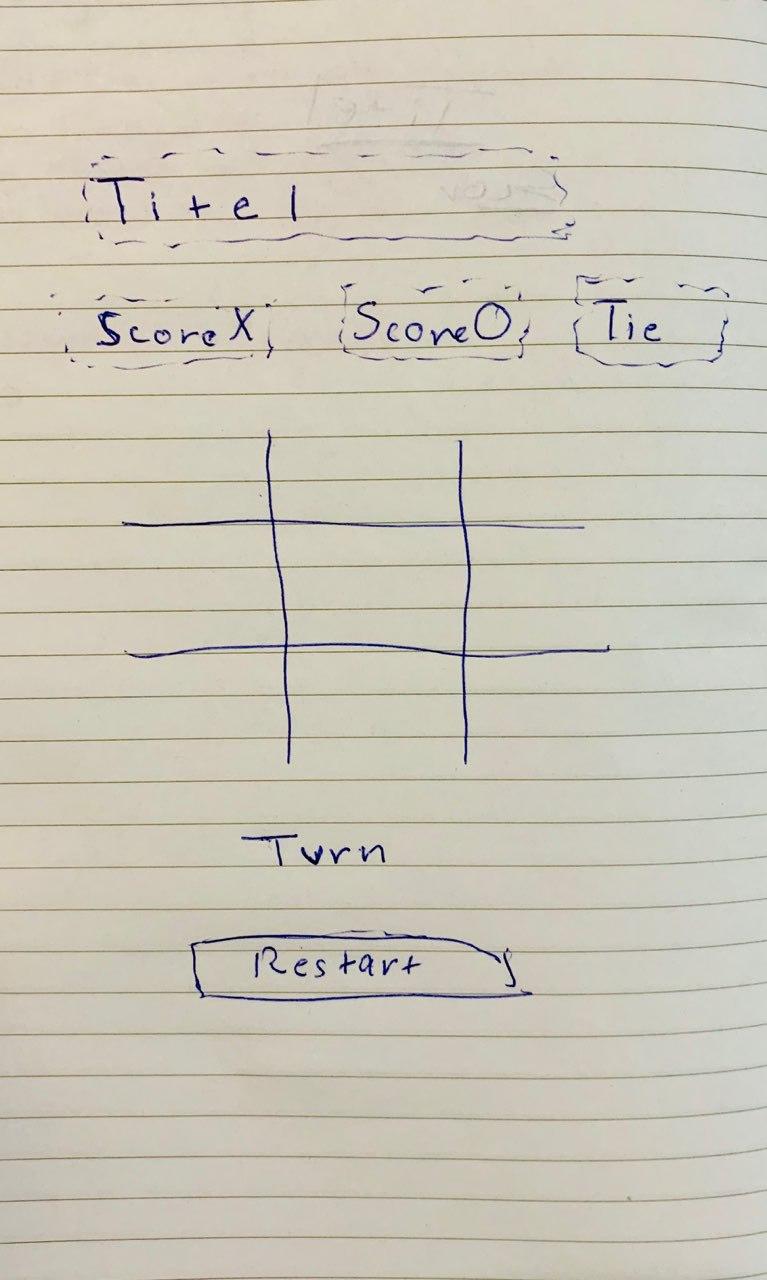 Titel
ScoreX ScoreO Tie
Turn
Restart